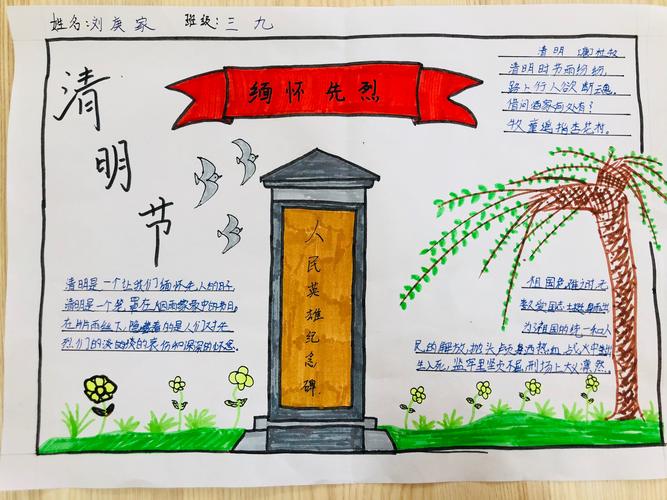 姓名:刘 家 班级:三 九
缅怀先烈
清明节
清明 [唐]杜牧
清明时节雨纷纷,
路上行人欲断魂。
借问酒家何处有?
牧童遥指杏花村。
人民英雄纪念碑
清明是一个让我们缅怀先人的日子,
清明是一个笼罩在烟雨中的节日。
在雨丝下,隐藏着的是人们对先
烈们的淡淡的哀伤和深深的怀念。
祖国危难时,无
数爱国志士挺身而出
为祖国的统一和人
民的解放,抛头颅洒热血,战火中出
生入死,监牢里坚贞不屈,刑场上大义凛然。